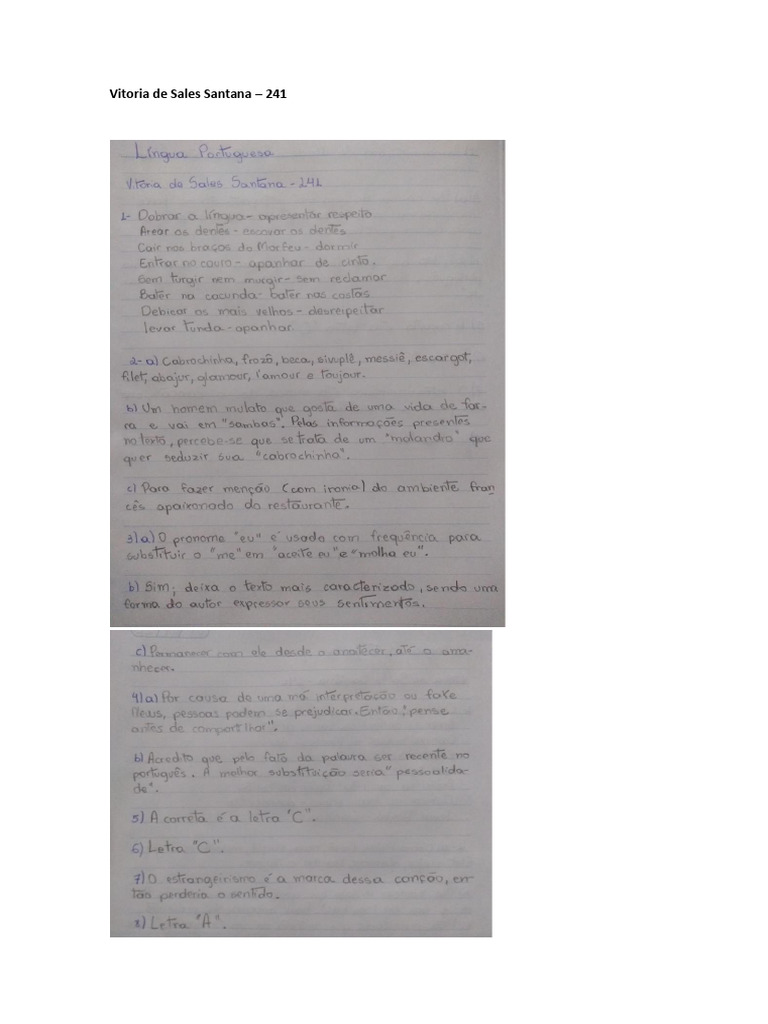 Vitoria de Sales Santana – 241
Língua Portuguesa
Vitória de Sales Santana - 241
1- Dobrar a língua - apresentar respeito
Arear os dentes - escovar os dentes
Cair nos braços do Morfeu - dormir
Entrar no couro - apanhar de cinto.
Sem tungir nem mungir - sem reclamar
Bater na cacunda - bater nas costas
Debicar os mais velhos - desrespeitar
levar tunda - apanhar
2- a) Cabrochinha, frozô, beca, sivuplê, messiê, escargot,
filet, abajur, glamour, l'amour e toujour.
b) Um homem mulato que gosta de uma vida de far-
ra e vai em "sambas". Pelas informações presentes
no texto, percebe-se que se trata de um "malandro" que
quer seduzir sua "cabrochinha".
c) Para fazer menção (com ironia) do ambiente fran
cês apaixonado do restaurante.
3) a) O pronome "eu" é usado com frequência para
substituir o "me" em "aceite eu" e "molha eu".
b) Sim; deixa o texto mais caracterizado, sendo uma
forma do autor expressar seus sentimentos.
c) Permanecer com ele desde o anoitecer, até o ama-
nhecer.
4) a) Por causa de uma má interpretação ou fake
News, pessoas podem se prejudicar. Então: "pense
antes de compartilhar".
b) Acredito que pelo fato da palavra ser recente no
português. A melhor substituição seria "pessoalida-
de".
5) A correta é a letra "C".
6) Letra "C".
7) O estrangeirismo é a marca dessa canção, en-
tão perderia o sentido.
8) Letra "A".